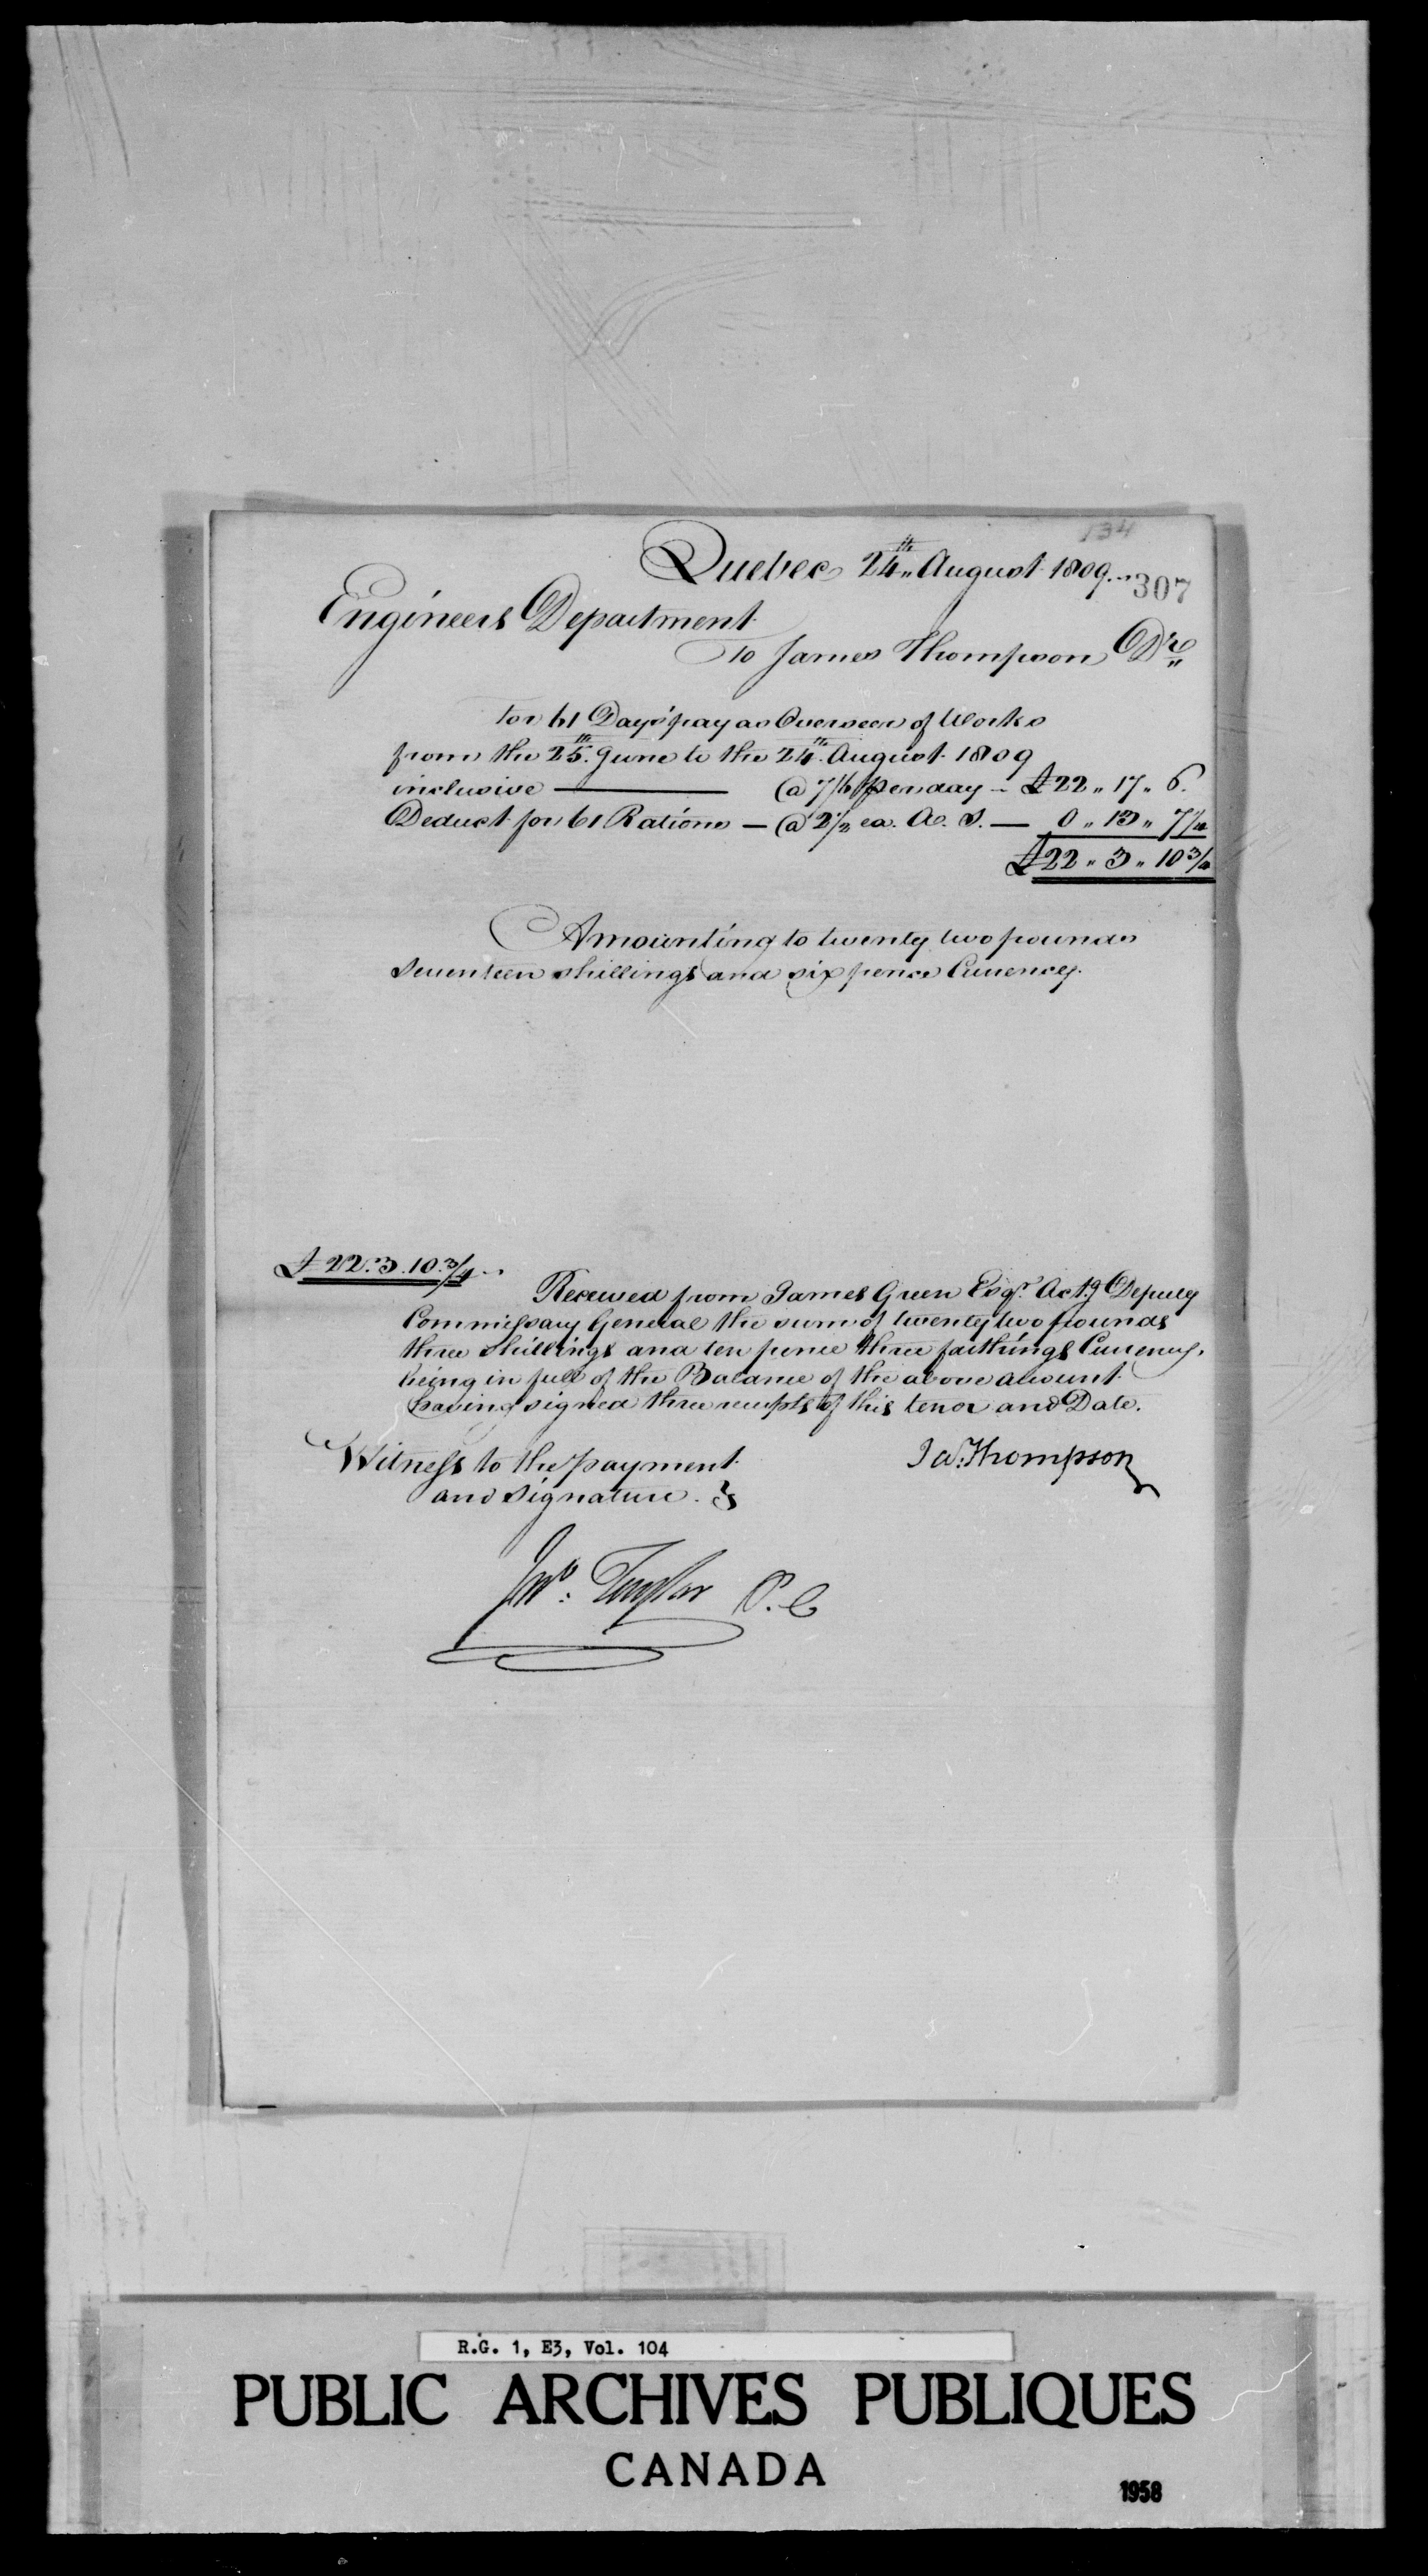 134
Quebec 24th August 1809.
307
Engineers Department
To James Thompson Dr
For 61 Days' pay as Overseer of Works
from the 25th June to the 24th August 1809
inclusive — @ 7/6 per day — £22 " 17 " 6.
Deduct for 61 Rations — @ 2½ ea. A. S. — 0 " 13 " 7¼
£22 " 3 " 10¾
Amounting to twenty two pounds
seventeen shillings and six pence Currency.
£22.3.10¾
Received from James Green Esqr. Actg Deputy
Commissary General the sum of twenty two pounds
three shillings and ten pence three farthings Currency,
being in full of the Balance of the above account
having signed three receipts of this tenor and Date.
Witness to the payment
and signature.
Ja. Thompson
Jno. Taylor P. C
R.G. 1, E3, Vol. 104
PUBLIC ARCHIVES PUBLIQUES
CANADA
1958